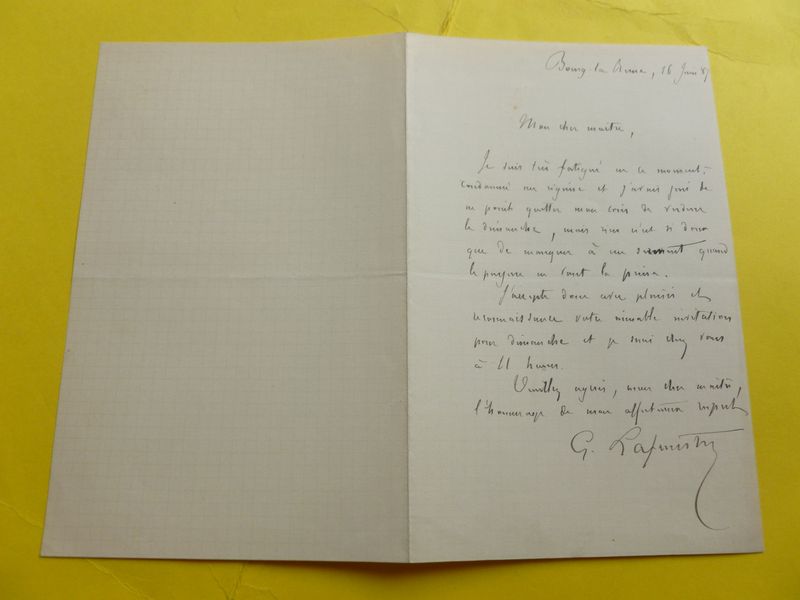 Bourg la Reine, 16 Juin 87
Mon cher maître,
Je suis très fatigué en ce moment,
condamné au régime et j'avais juré de
ne point quitter mon coin de verdure
le dimanche, mais rien n'est si doux
que de manquer à un serment quand
le parjure en vaut la peine.
J'accepte donc avec plaisir et
reconnaissance votre aimable invitation
pour dimanche et je serai chez vous
à 11 heures.
Veuillez agréer, mon cher maître,
l'hommage de mon affectueux respect
G. Lafenestre